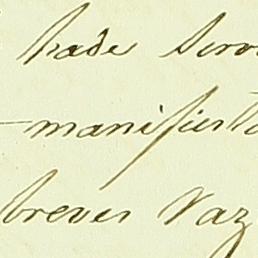 hade
-manifiesta
breves raz